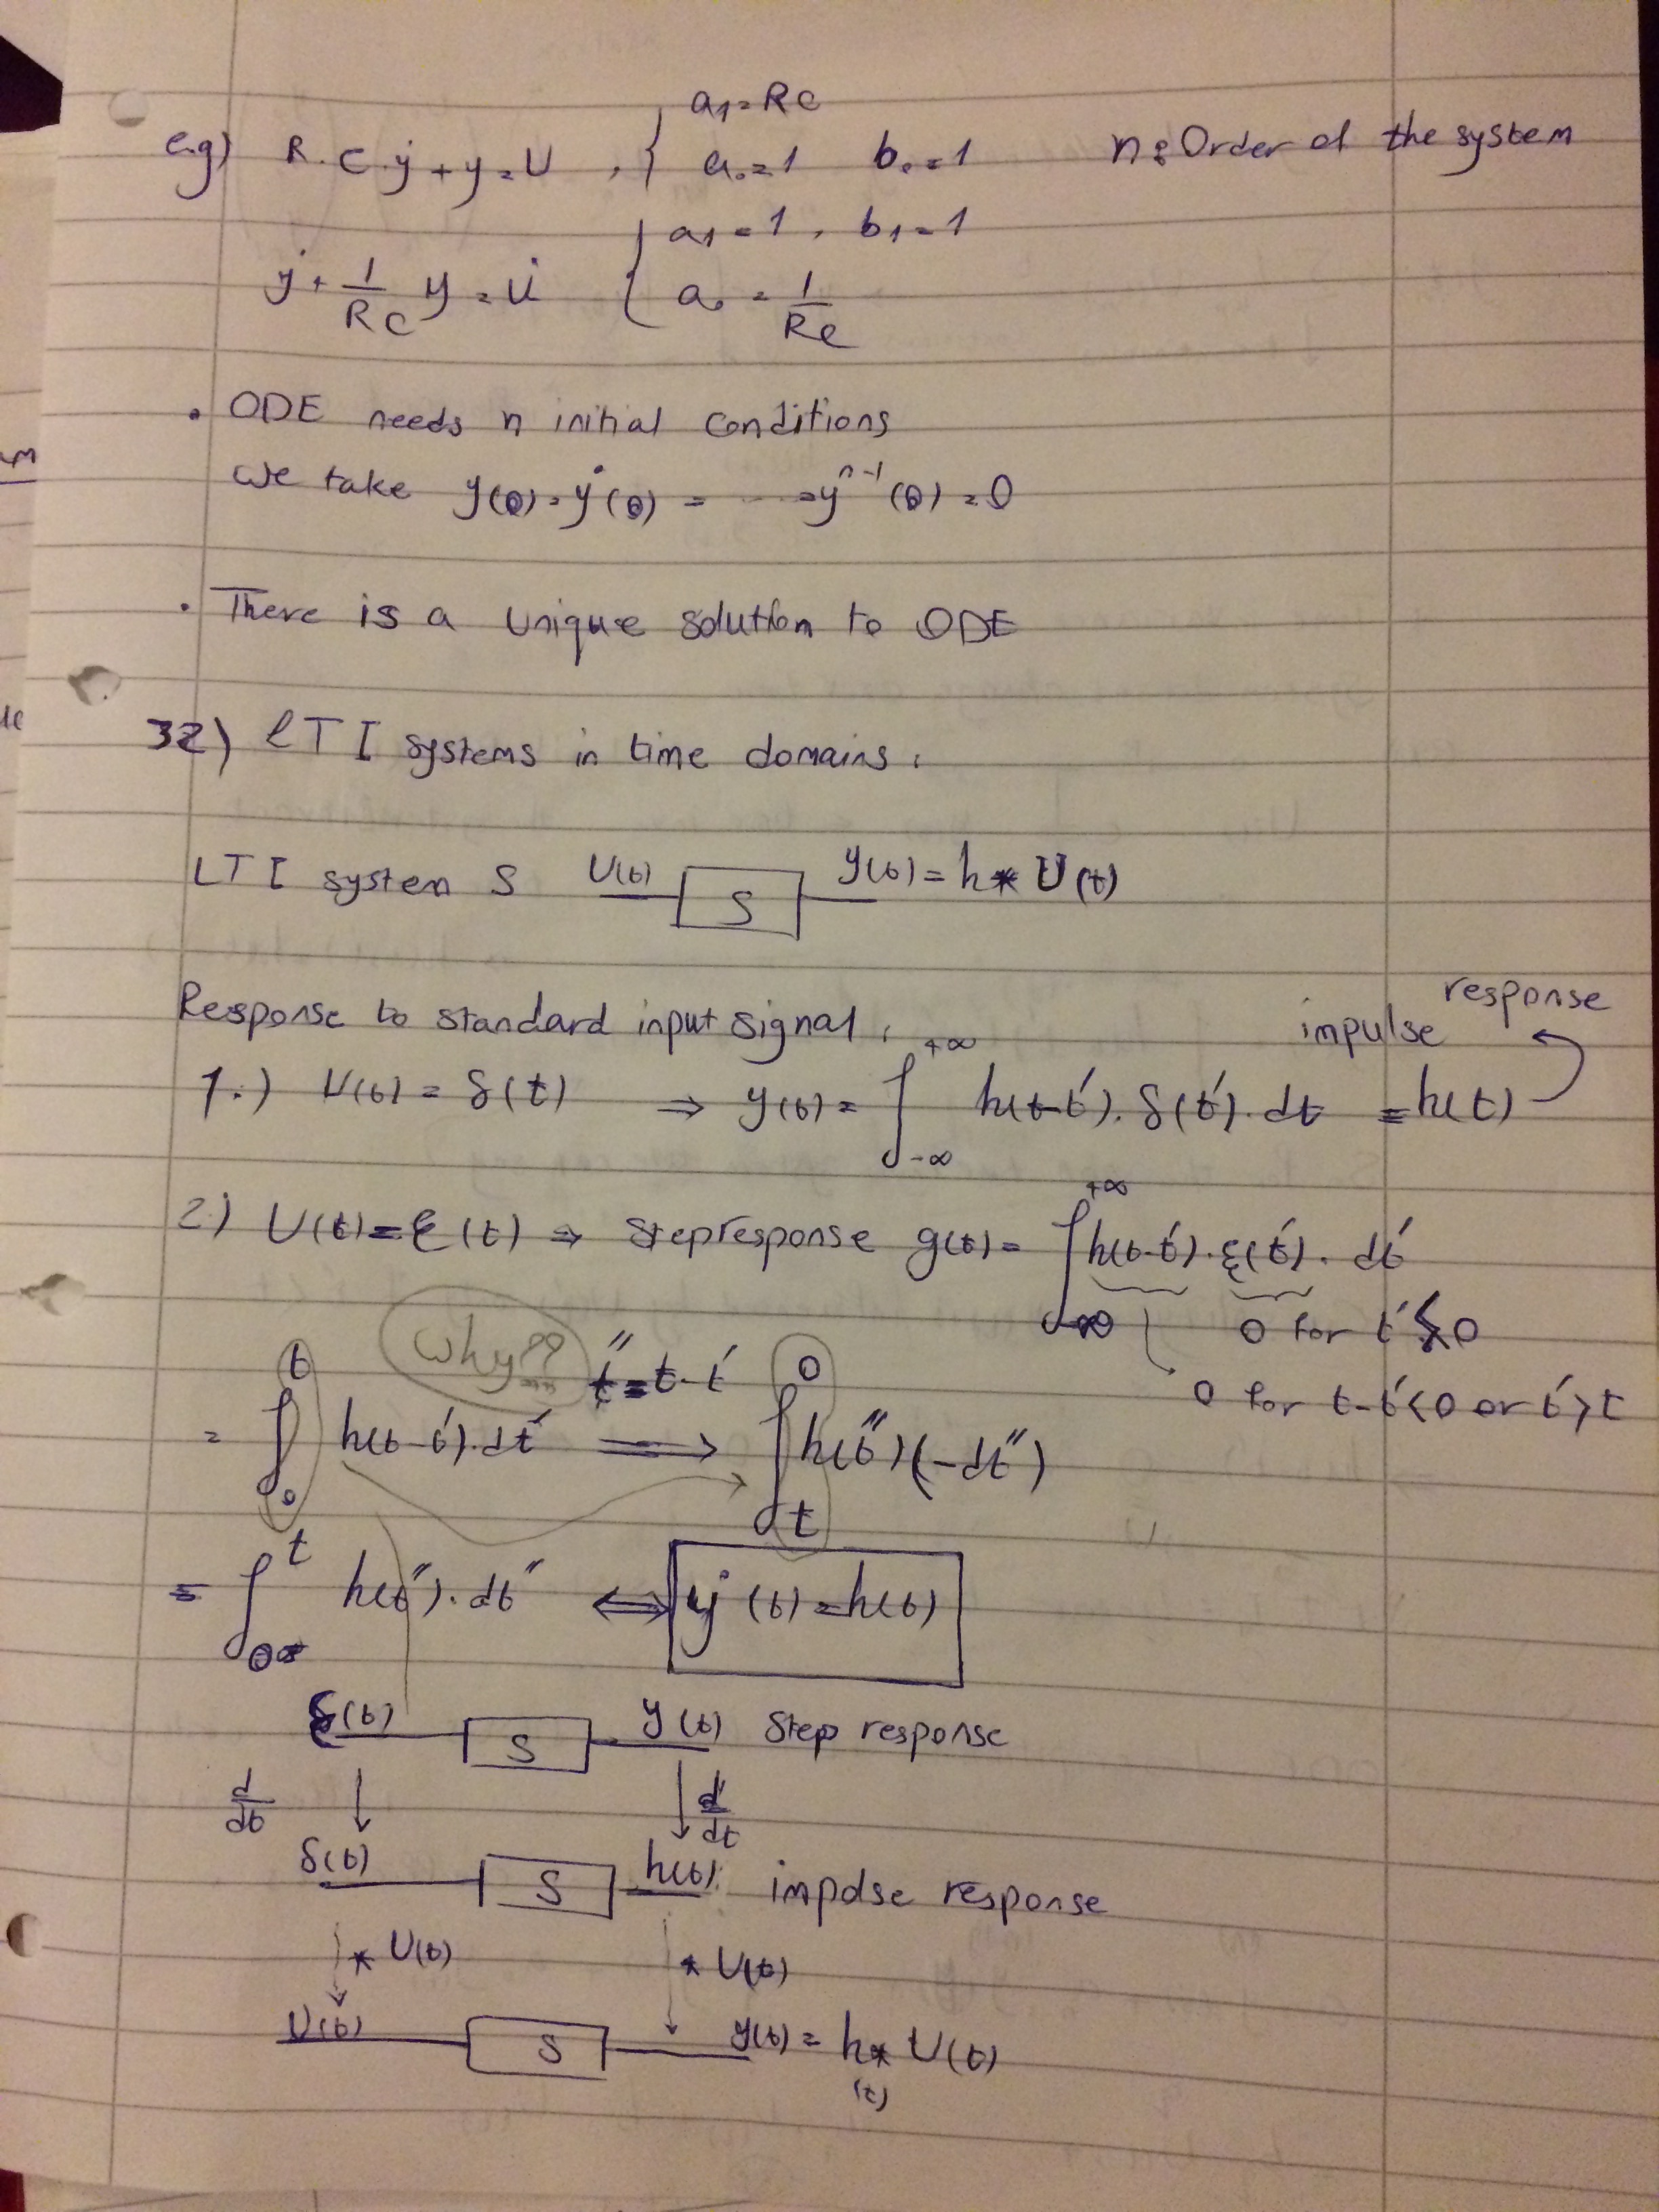 a₁=RC
e.g) R.C.ẏ+y=U , { a₀=1 b₀=1 n: Order of the system
ẏ+1/RC y=U̇ { a₁=1, b₁=1
a₀=1/RC
• ODE needs n initial conditions
We take y(0)=ẏ(0)=----=yⁿ⁻¹(0)=0
• There is a unique solution to ODE
32) LTI systems in time domains:
LTI system S U(t) S y(t)=h*U(t)
Response to standard input signal: impulse response
1.) U(t)=δ(t) ⇒ y(t)=∫₋∞^+∞ h(t-t').δ(t').dt =h(t)
2) U(t)=ε(t) ⇒ Stepresponse g(t)=∫₋∞^+∞ h(t-t').ε(t').dt'
0 for t'<0
0 for t-t'<0 or t'>t
why??
=∫₀^t h(t-t').dt' t''=t-t' ⟹ ∫_t^0 h(t'')(-dt'')
=∫₀^t h(t'').dt'' ⟺ ẏ(t)=h(t)
ε(t) S y(t) Step response
d/dt ↓ ↓ d/dt
δ(t) S h(t) impulse response
* U(t) * U(t)
U(t) S y(t)=h*U(t)
(t)